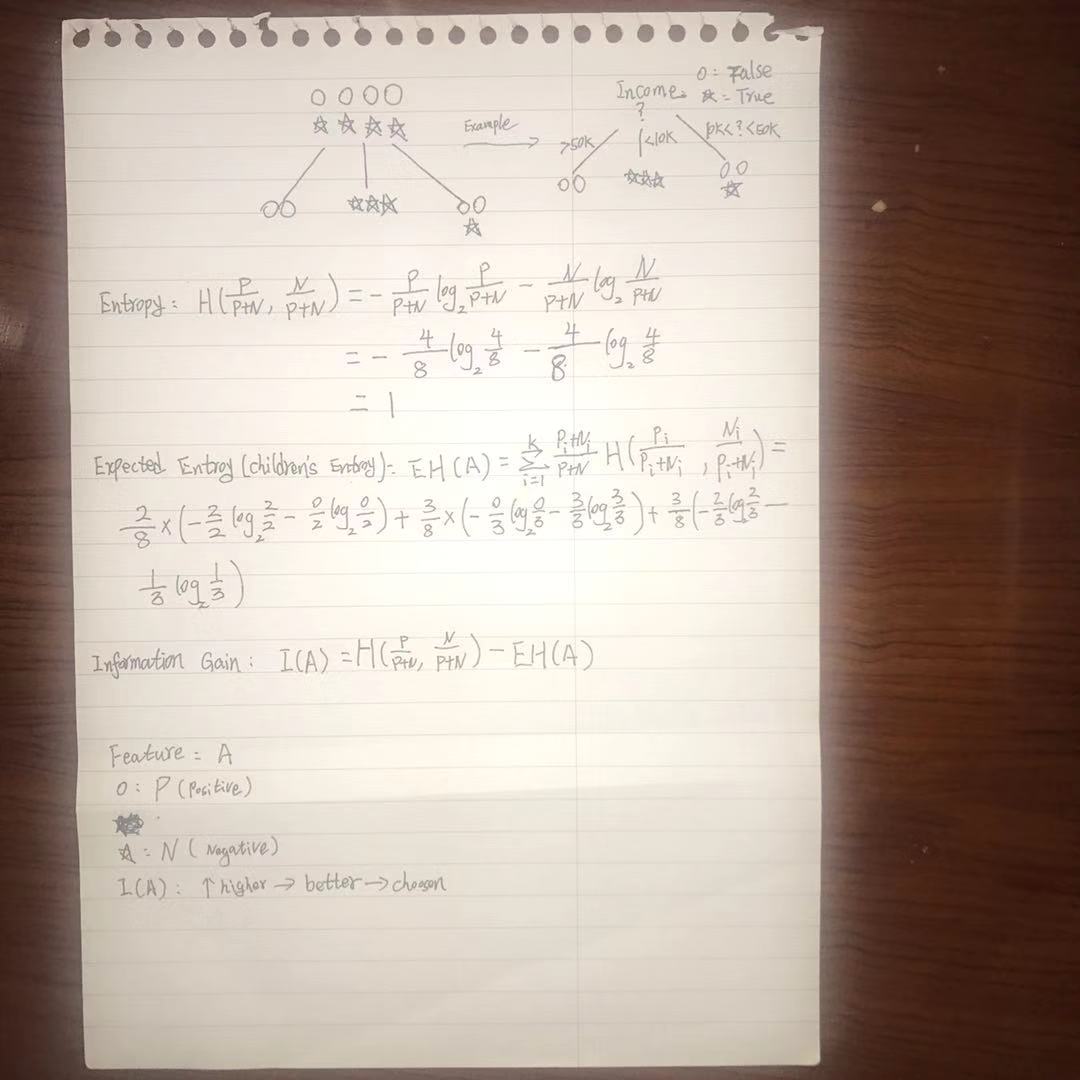 O O O O
☆ ☆ ☆ ☆
Example
Income.
?
O : False
☆ = True
>50K
<10K
10K<?<50K
OO
☆☆☆
OO
☆
OO
☆☆☆
OO
☆
Entropy : H(P/P+N, N/P+N) = - P/P+N log₂ P/P+N - N/P+N log₂ N/P+N
= - 4/8 log₂ 4/8 - 4/8 log₂ 4/8
= 1
Expected Entroy (children's Entroy) : EH(A) = Σ_{i=1}^{K} Pi+Ni/P+N H(Pi/Pi+Ni, Ni/Pi+Ni) =
2/8 × (- 2/2 log₂ 2/2 - 0/2 log₂ 0/2) + 3/8 × (- 0/3 log₂ 0/3 - 3/3 log₂ 3/3) + 3/8 (- 2/3 log₂ 2/3 -
1/3 log₂ 1/3)
Information Gain : I(A) = H(P/P+N, N/P+N) - EH(A)
Feature = A
O : P (Positive)
☆ : N ( Nagative)
I(A) : ↑ higher → better → choosen